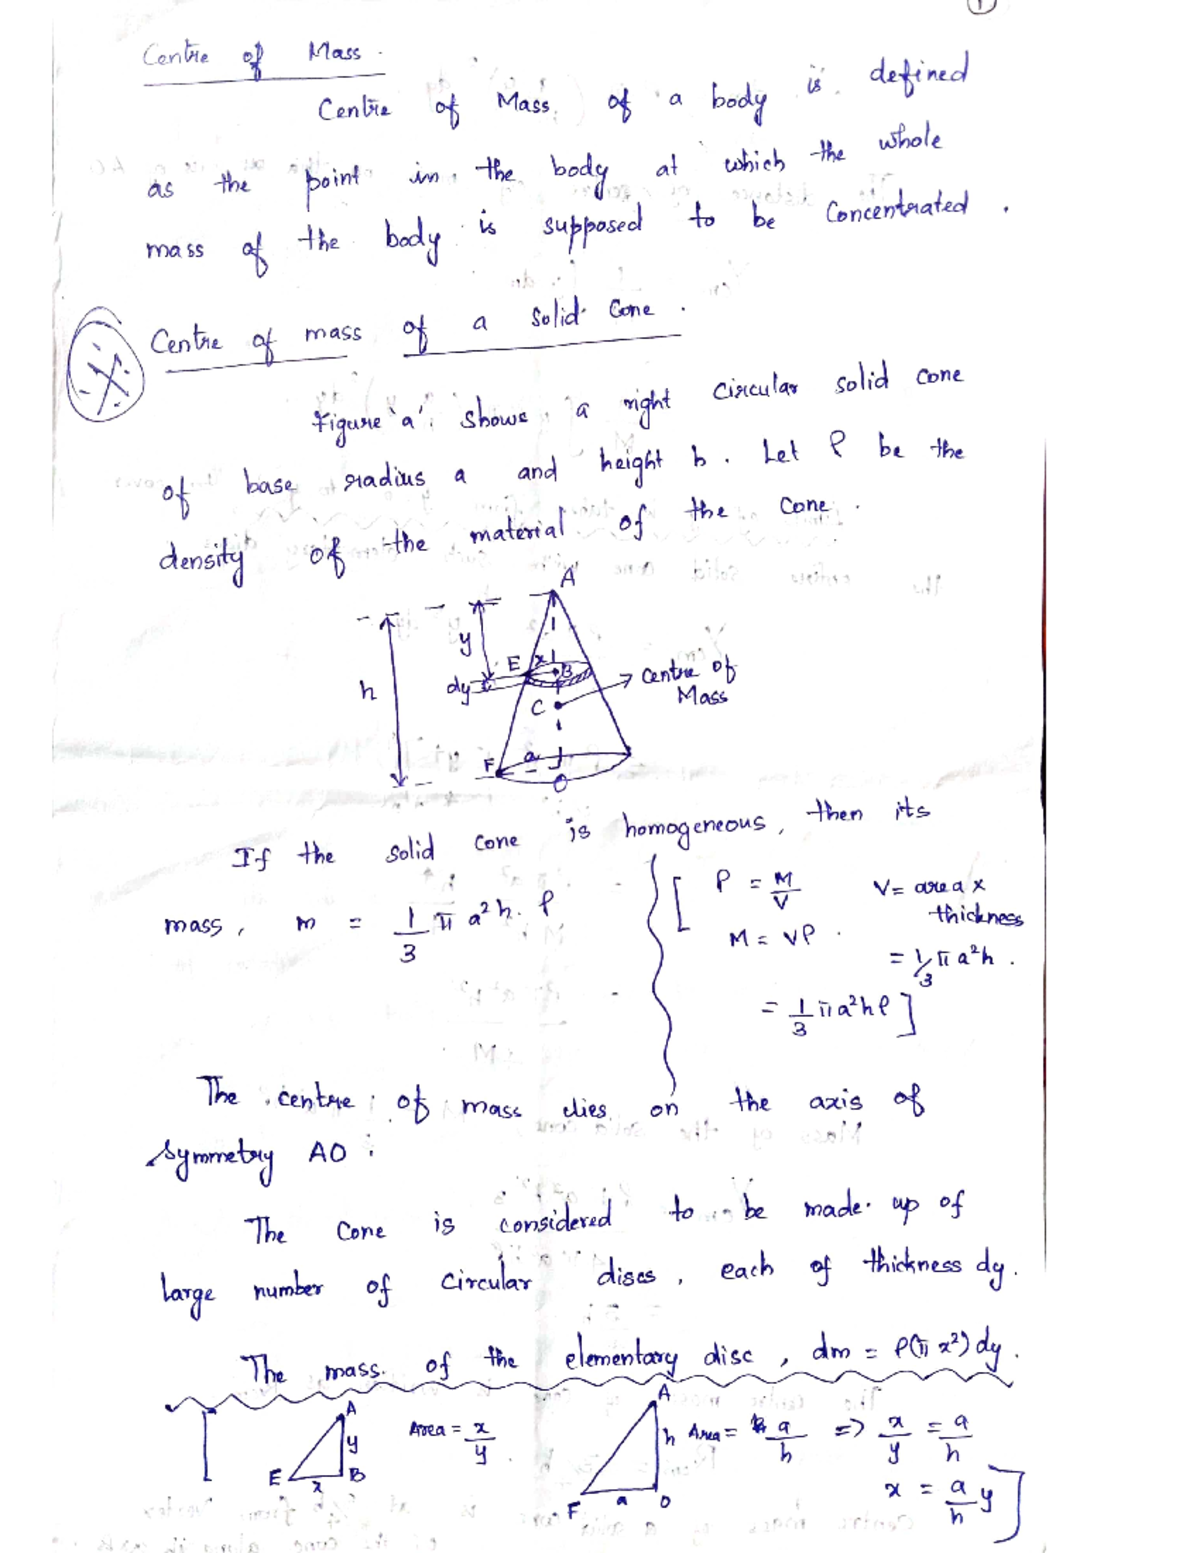 1
Centre of Mass.
Centre of Mass of a body is defined
as the point in the body at which the whole
mass of the body is supposed to be Concentrated.
Centre of mass of a Solid Cone.
Figure 'a' shows a right Circular solid cone
of base radius a and height h. Let ρ be the
density of the material of the Cone.
A
y
h
E x B
dy
C
Centre of
Mass
F a
O
If the solid cone is homogeneous, then its
mass, m = 1/3 π a²h. ρ
[ ρ = M/V V = area x
thickness
M = Vρ.
= 1/3 π a²h.
= 1/3 πa²hρ ]
The centre of mass lies on the axis of
Symmetry AO.
The Cone is considered to be made up of
large number of Circular discs, each of thickness dy.
The mass of the elementary disc, dm = ρ(π x²) dy.
[ A y E x B Area = x/y. A h F a O Area = a/h => x/y = a/h
x = a/h y ]